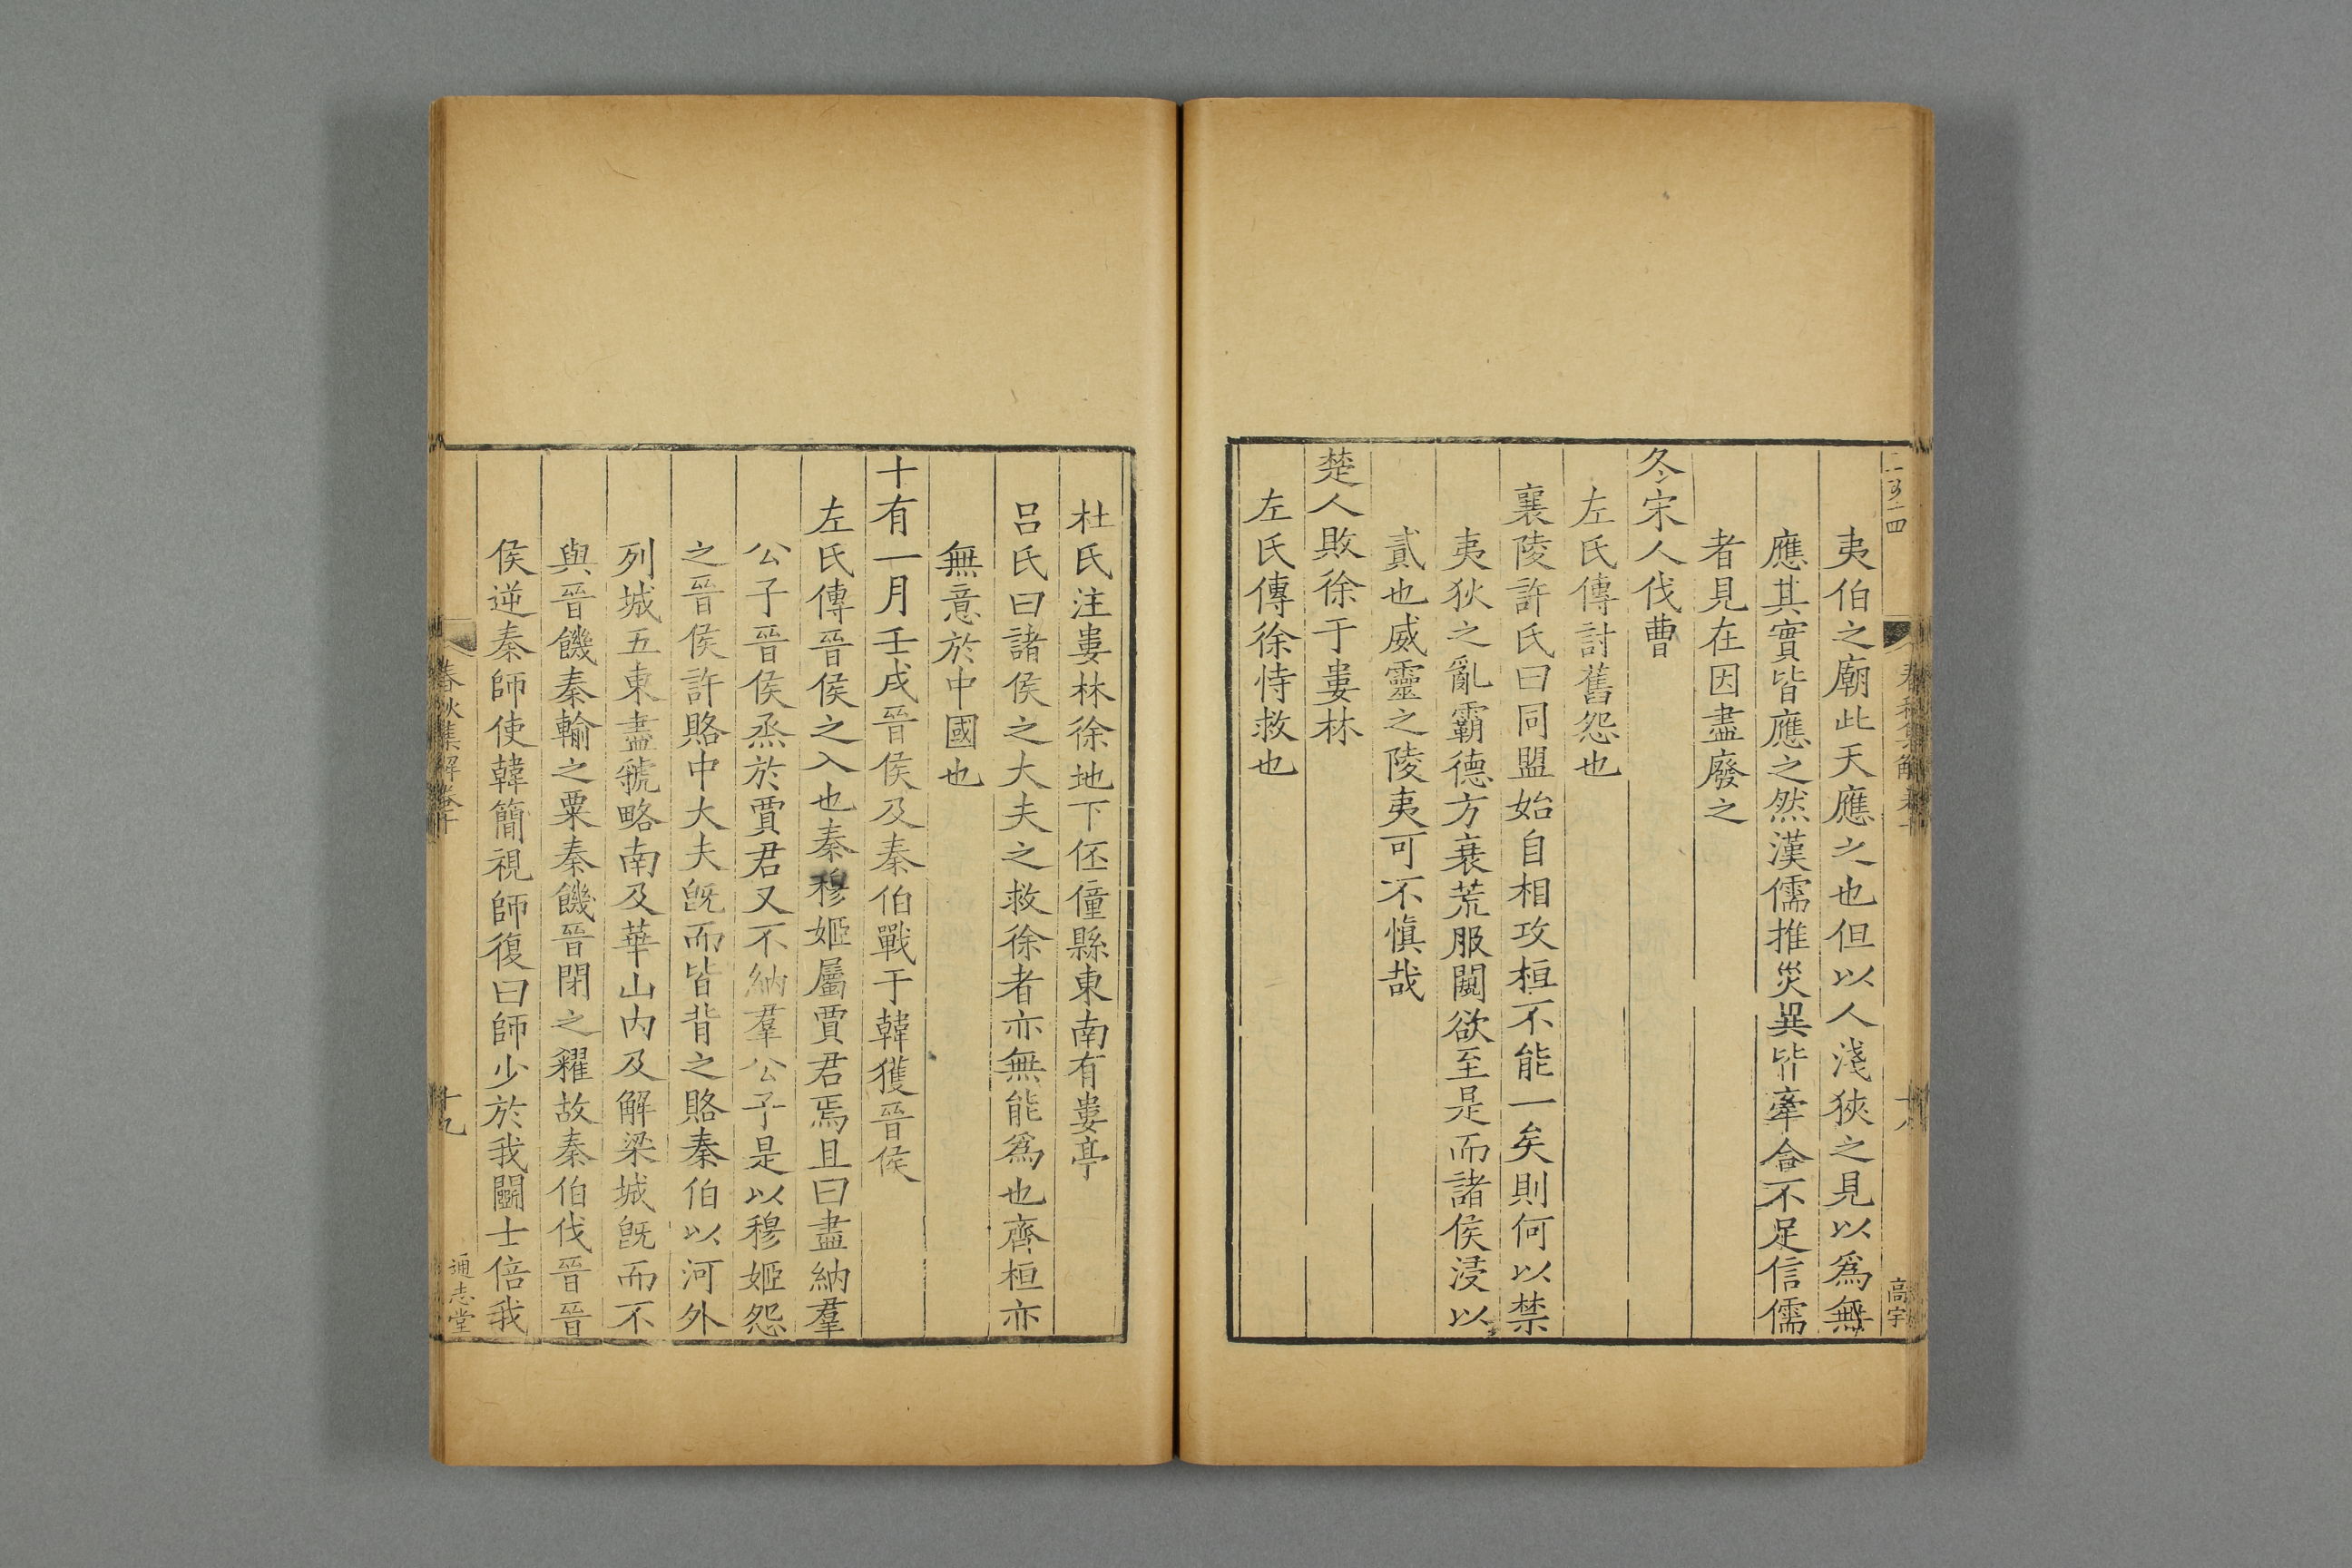 二百二四
春秋集解卷十
十八
高宇
夷伯之廟此天應之也但以人淺狹之見以爲無
應其實皆應之然漢儒推災異皆牽合不足信儒
者見在因盡廢之
冬宋人伐曹
左氏傳討舊怨也
襄陵許氏曰同盟始自相攻桓不能一矣則何以禁
夷狄之亂霸德方衰荒服闚欲至是而諸侯浸以
貳也威靈之陵夷可不愼哉
楚人敗徐于婁林
左氏傳徐恃救也
杜氏注婁林徐地下邳僮縣東南有婁亭
呂氏曰諸侯之大夫之救徐者亦無能爲也齊桓亦
無意於中國也
十有一月壬戌晉侯及秦伯戰于韓獲晉侯
左氏傳晉侯之入也秦穆姬屬賈君焉且曰盡納羣
公子晉侯烝於賈君又不納羣公子是以穆姬怨
之晉侯許賂中大夫旣而皆背之賂秦伯以河外
列城五東盡虢略南及華山內及解梁城旣而不
與晉饑秦輸之粟秦饑晉閉之糴故秦伯伐晉晉
侯逆秦師使韓簡視師復曰師少於我鬬士倍我
春秋集解卷十
十九
通志堂